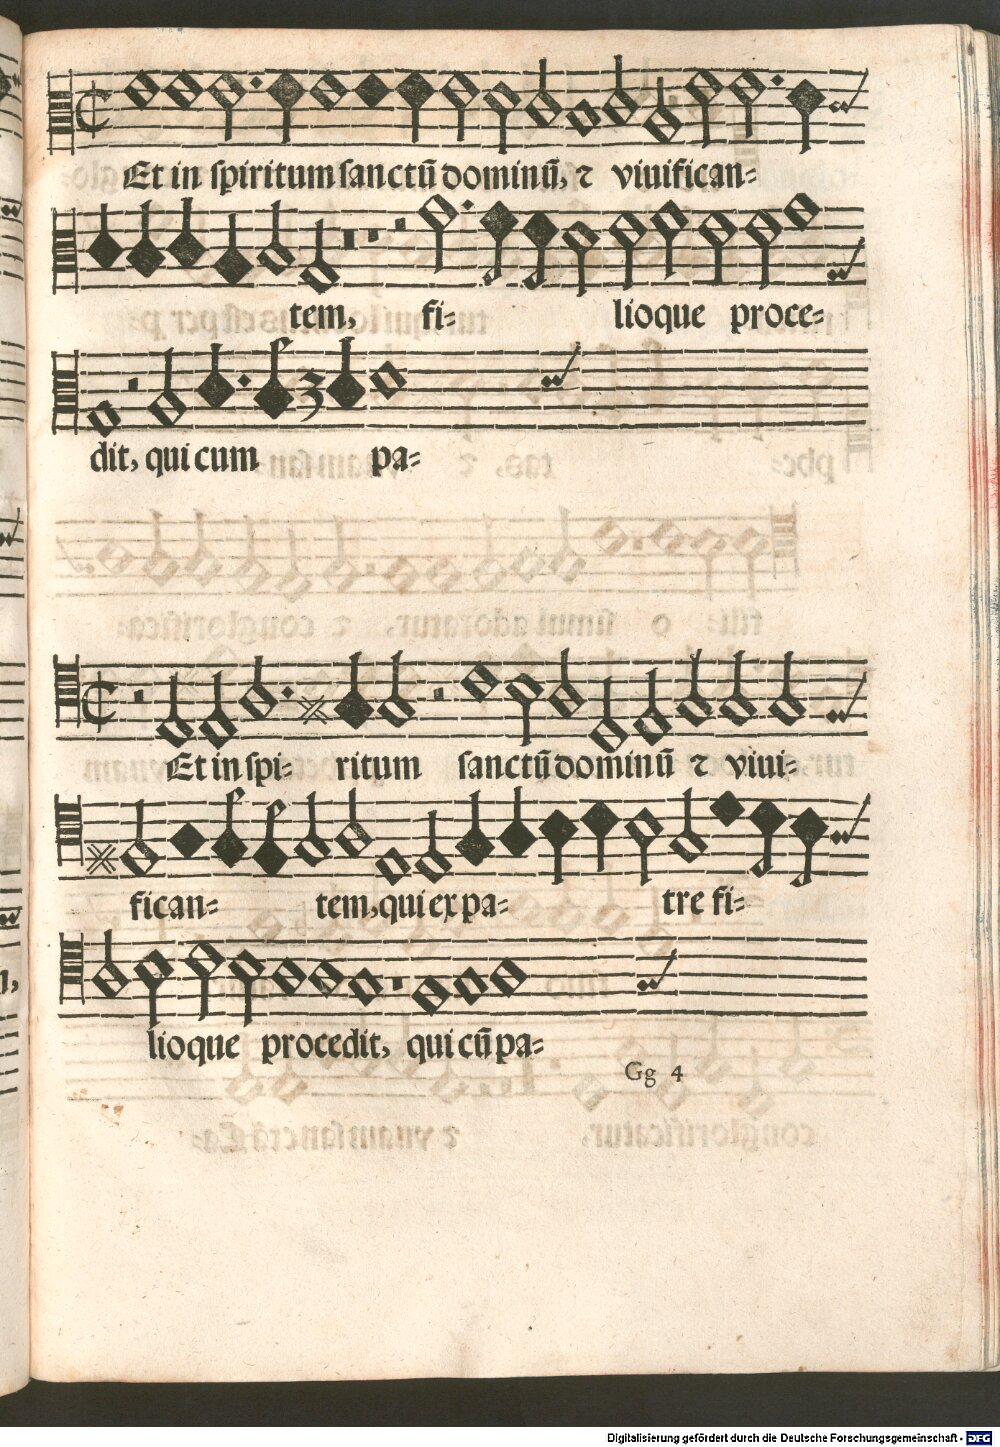 Et in spiritum sanctū dominū, ⁊ viuifican=
tem, fi= lioque proce=
dit, qui cum pa=
Et in spi= ritum sanctū dominū ⁊ viui=
fican= tem, qui ex pa= tre fi=
lioque procedit, qui cū pa=
Gg 4
Digitalisierung gefördert durch die Deutsche Forschungsgemeinschaft - DFG